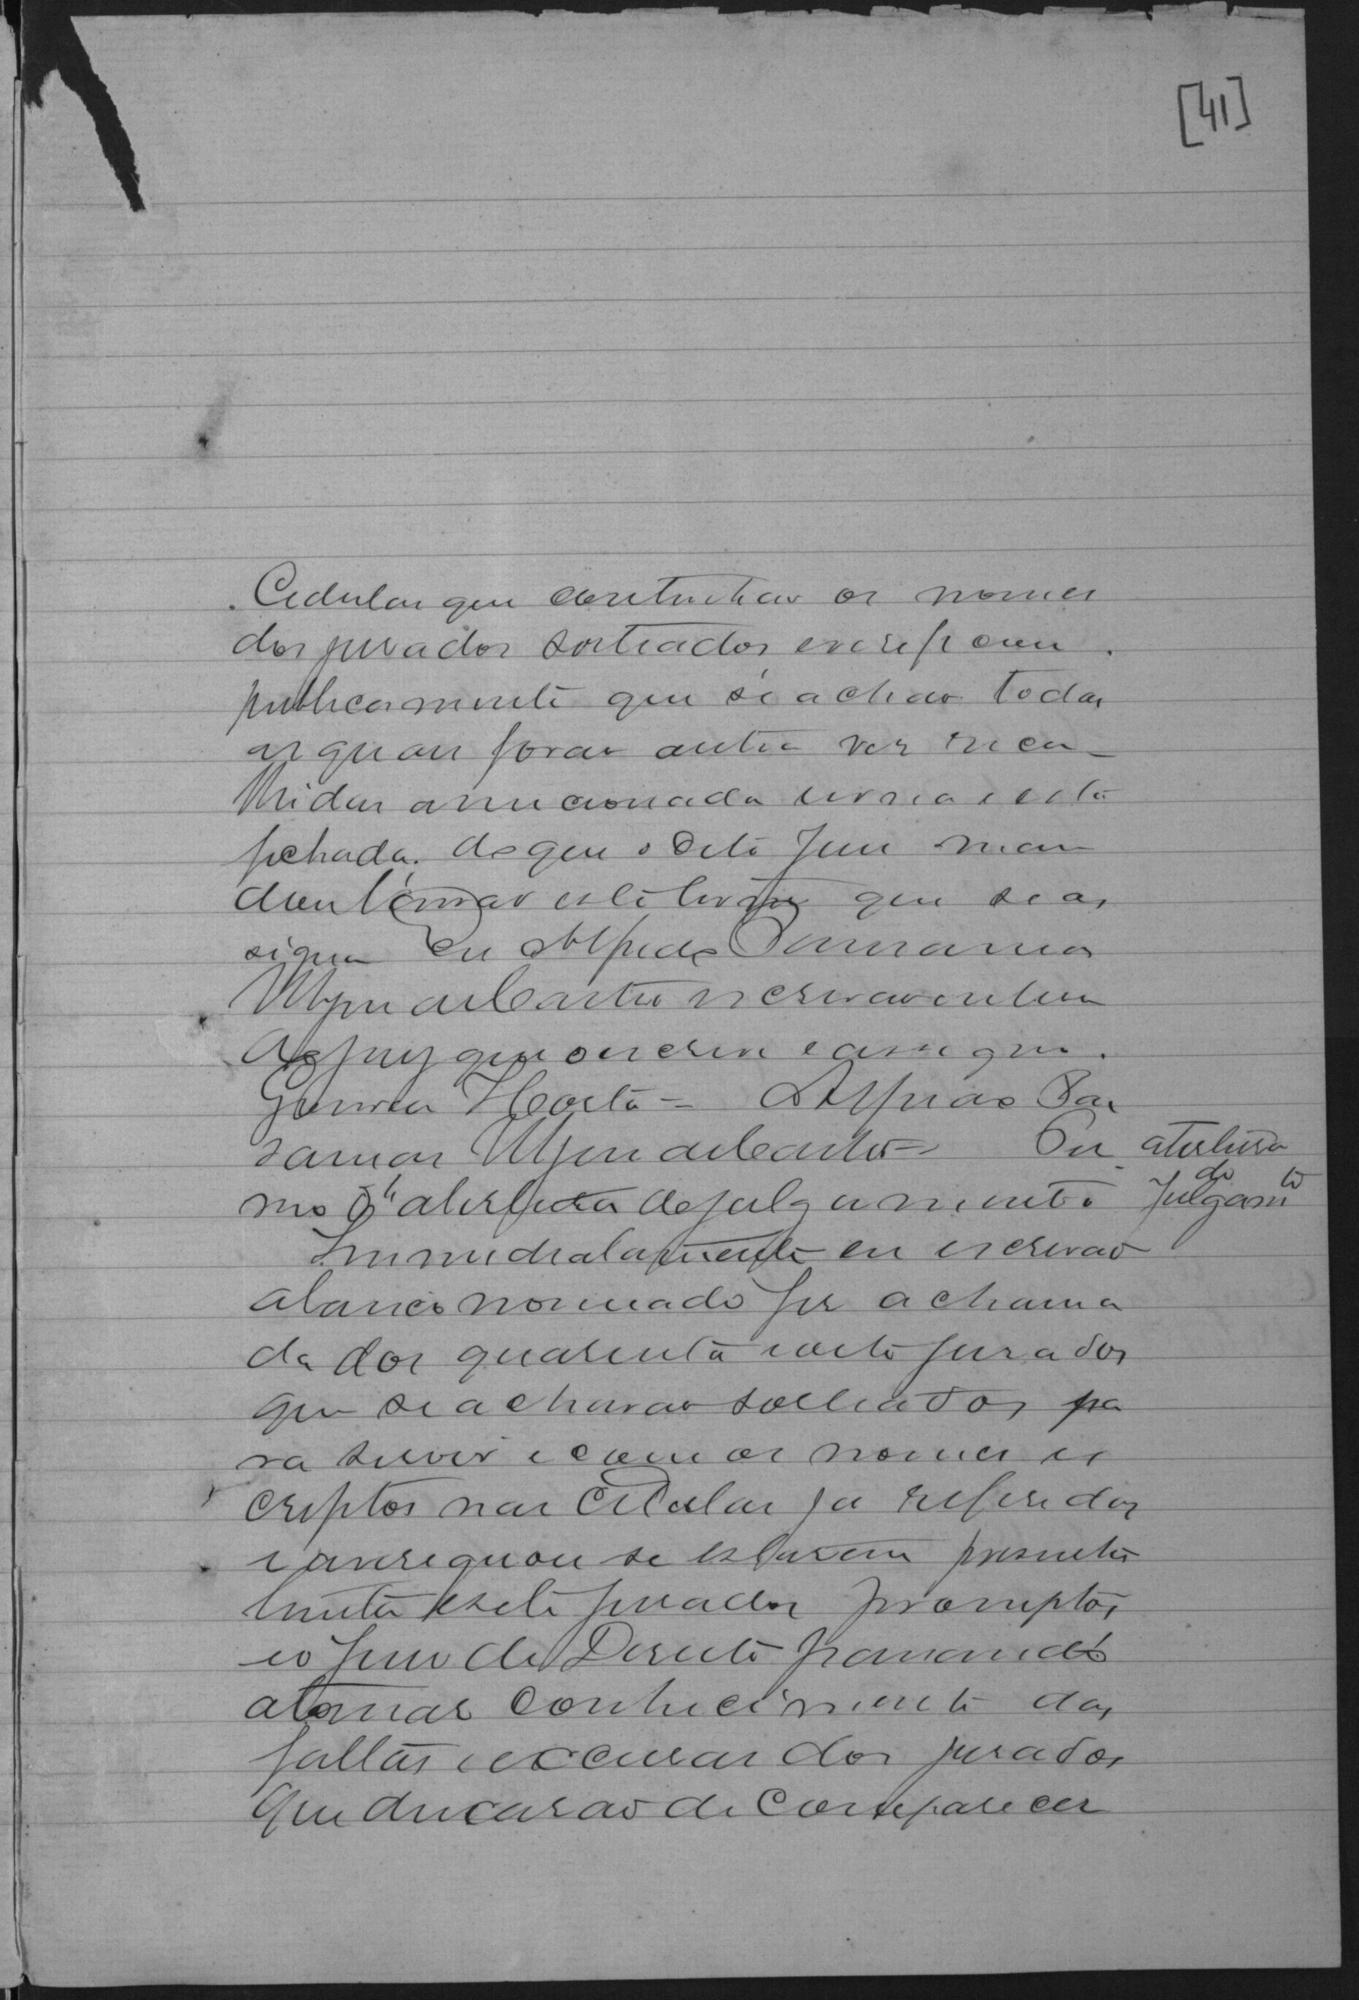 [41]
Cedulas que continhão os nomes
dos jurados sorteados e verificou
publicamente que se achão todas
as quaes forão outra vez reco-
lhidas a mencionada urna e esta
fechada. de que o dito Juiz man
dou lavrar este termo que se as
signa Eu Alfredo
de Castro escrevente
do Jury que o escrevi e assigno.
H Costa = Alfredo
de Castro = Ter atertura
mo d'abertura de julgamento do Julgam to
Immediatamente eu escrivão
abaixo nomeado fiz a chama
da dos quarenta e oito jurados
que se achavão sorteados pa
ra servir e com os nomes es
criptos nas Cedulas ja referidas
e averiguou se estarem presentes
trinta e sete jurados promptos,
e o Juiz de Direito passando
a tomar conhecimento das
faltas e excusas dos jurados
que deixarão de comparecer